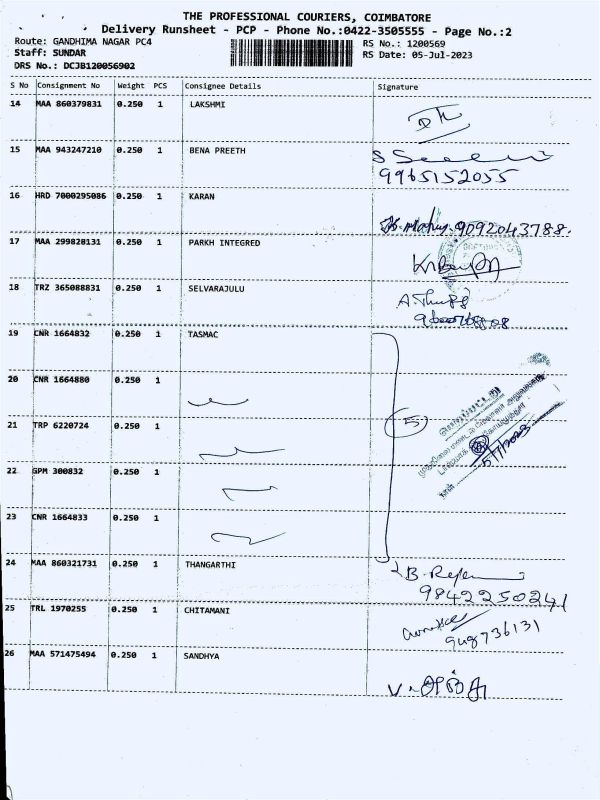 THE PROFESSIONAL COURIERS, COIMBATORE
Delivery Runsheet - PCP - Phone No.:0422-3505555 - Page No.:2
Route: GANDHIMA NAGAR PC4
RS No.: 1200569
Staff: SUNDAR
RS Date: 05-Jul-2023
DRS No.: DCJB120056902
S No Consignment No Weight PCS Consignee Details Signature
14 MAA 860379831 0.250 1 LAKSHMI
15 MAA 943247210 0.250 1 BENA PREETH
9965152055
16 HRD 7000295086 0.250 1 KARAN
9092043788.
17 MAA 299828131 0.250 1 PARKH INTEGRED
18 TRZ 365088831 0.250 1 SELVARAJULU
19 CNR 1664832 0.250 1 TASMAC
20 CNR 1664880 0.250 1
21 TRP 6220724 0.250 1
5
22 GPM 300832 0.250 1
23 CNR 1664833 0.250 1
24 MAA 860321731 0.250 1 THANGARTHI
9842250241
25 TRL 1970255 0.250 1 CHITAMANI
26 MAA 571475494 0.250 1 SANDHYA